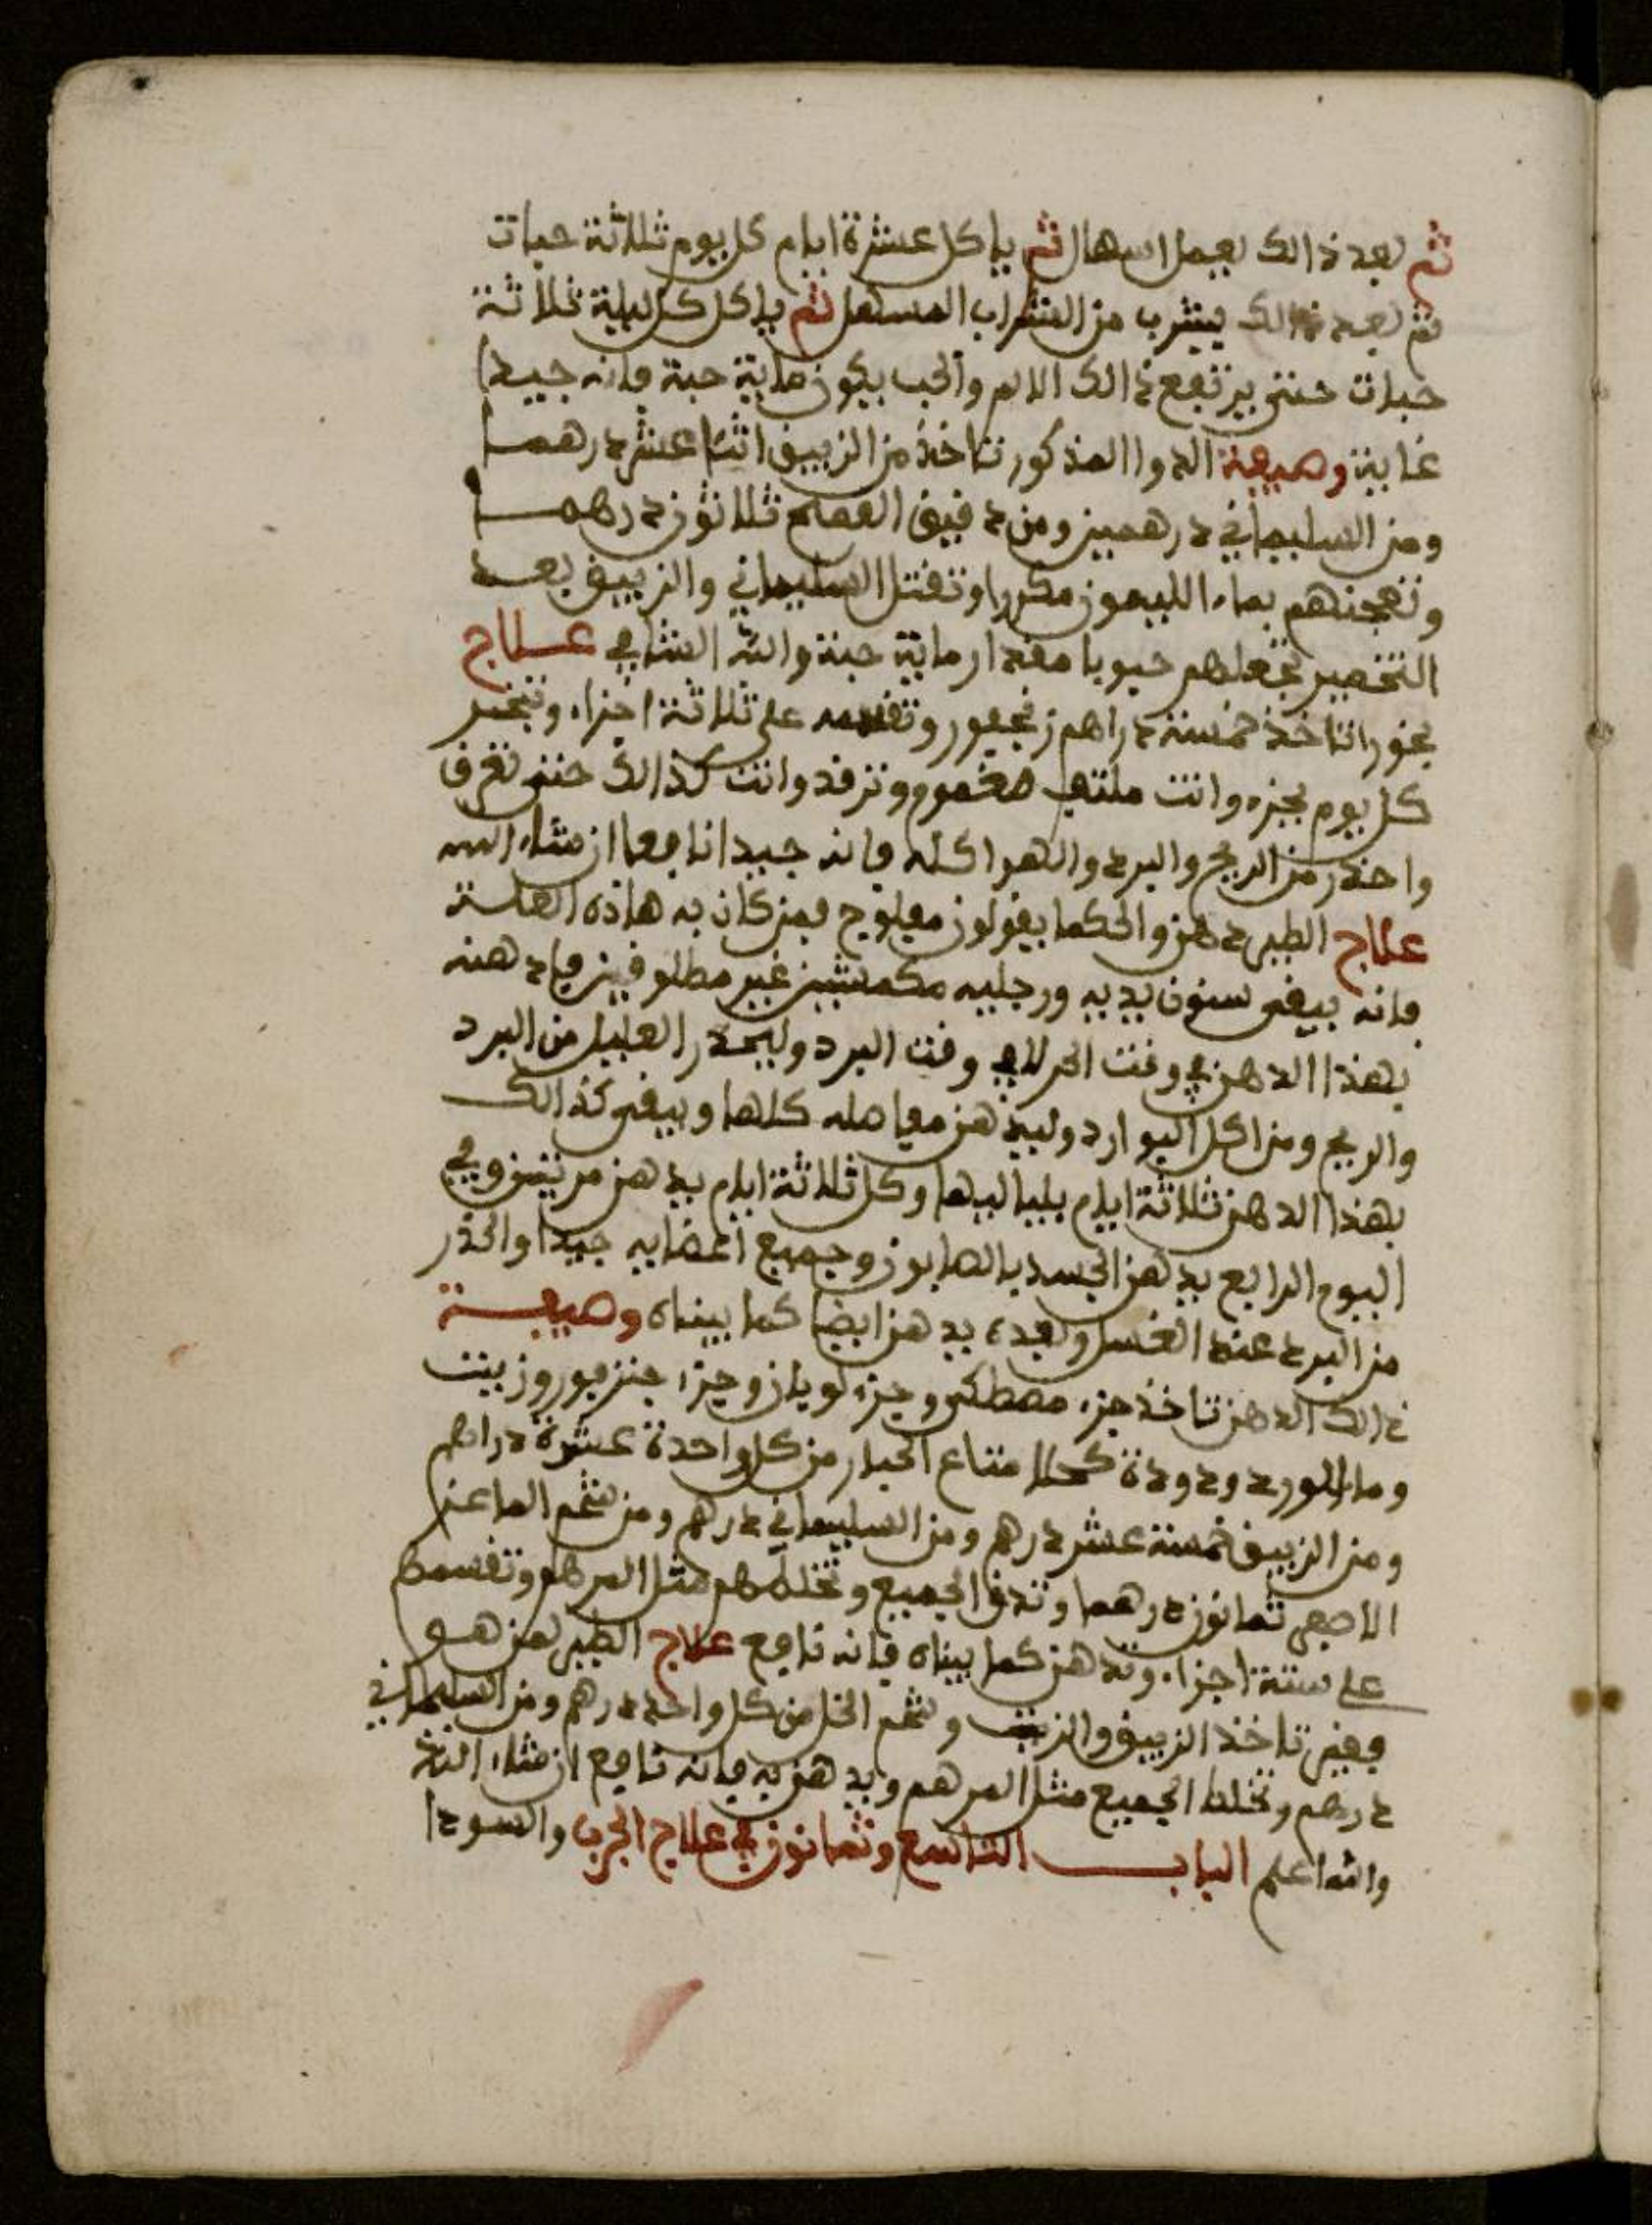 ثم بعد ذالك يعمل اسهال ثم ياكل عشرة ايام كل يوم ثلاثة حبات
ثم بعد ذالك يشرب من الشراب المسهل ثم ياكل كل ليلة ثلاثة
حبات حتى يرتفع ذالك الالم والحب يكون ماية حبة فانه جيدا
غاية وصيفة الدوا المذكور تاخذ من الزيبق اثنا عشر درهما
ومن السليماني درهمين ومن دقيق القمح ثلاثون درهما
وتعجنهم بماء الليمون مكررا وتقتل السليماني والزيبق بعد
التخمير تجعلهم حبوبا مقدار ماية حبة والله الشافي علاج
بخورا تاخذ خمسة دراهم زنجفور وتقسمه على ثلاثة اجزاء وتبخر
كل يوم بجزء وانت ملتف مغموم وترقد وانت كذالك حتى تعرق
واحذر من الريح والبرد والهوا كله فانه جيدا نافعا ان شاء الله
علاج الطير دهن والحكما يقولون مفلوج فمن كان به هاذه العلة
فانه يبقى ستون يديه ورجليه مكمشين غير مطلوقين فادهنه
بهذا الدهن في وقت الحر لا في وقت البرد وليحذر العليل من البرد
والريح ومن اكل البوارد وليدهن مفاصله كلها ويبقى كذالك
بهذا الدهن ثلاثة ايام بلياليها وكل ثلاثة ايام يدهن مرتين وفي
اليوم الرابع يدهن الجسد بالصابون وجميع اعضايه جيدا والحذر
من البرد عند الغسل وبعده يدهن ايضا كما بيناه وصيفة
ذالك الدهن تاخذ جزء مصطكى وجزء لوبان وجزء جنزفور وزيت
وماالورد ودودة كحلا متاع الجدار من كل واحدة عشرة دراهم
ومن الزيبق خمسة عشر درهم ومن السليماني درهم ومن شحم الماعز
الاصفى ثمانون درهما وتدق الجميع وتخلطهم مثل المرهم وتقسمهم
على ستة اجزاء وتدهن كما بيناه فانه نافع علاج الطير لمن هو
فقير تاخذ الزيبق والزيت وشحم الخل من كل واحد درهم ومن السليماني
درهم وتخلط الجميع مثل المرهم ويدهن به فانه نافع ان شاء الله
والله اعلم الباب التاسع وثمانون في علاج الجرب والسودا